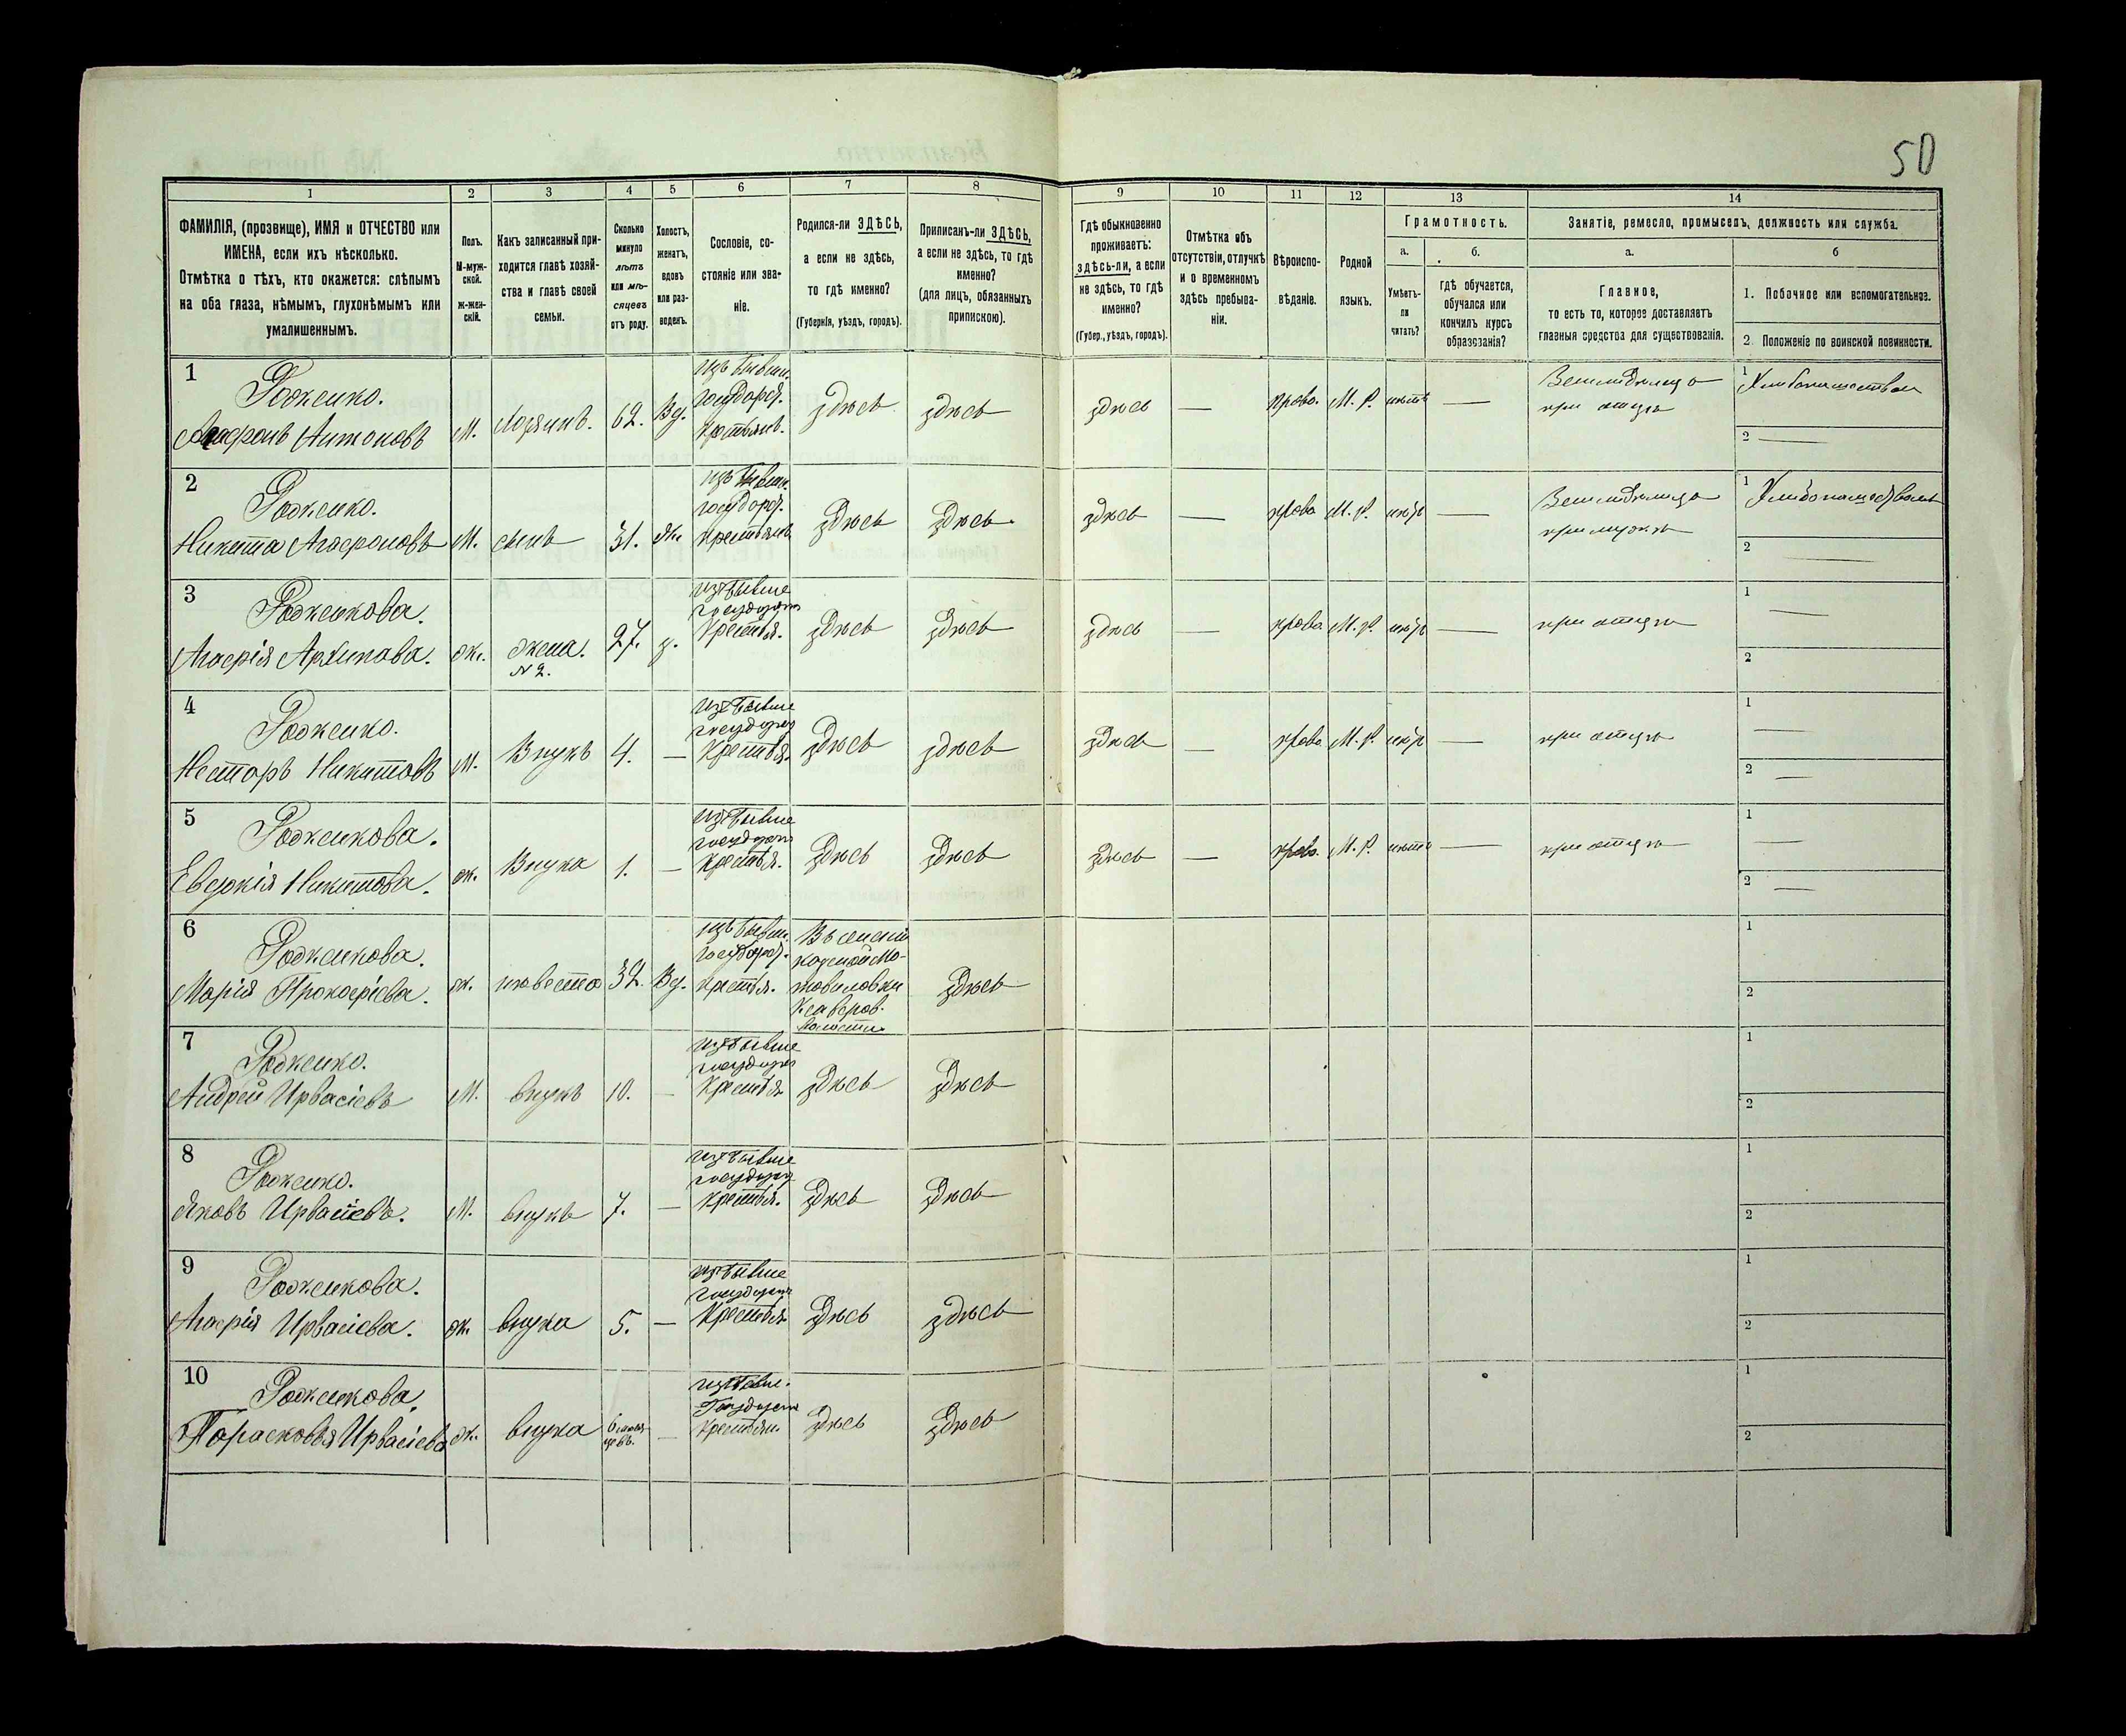 50
1
2
3
4
5
6
7
8
9
10
11
12
13
14
ФАМИЛІЯ, (прозвище), ИМЯ и ОТЧЕСТВО или
ИМЕНА, если ихъ нѣсколько.
Отмѣтка о тѣхъ, кто окажется: слѣпымъ
на оба глаза, нѣмымъ, глухонѣмымъ или
умалишеннымъ.
Полъ.
М-муж-
ской.
ж-жен-
скій.
Какъ записанный при-
ходится главѣ хозяй-
ства и главѣ своей
семьи.
Сколько
минуло
лѣтъ
или мѣ-
сяцевъ
отъ роду.
Холостъ,
женатъ,
вдовъ
или раз-
веденъ.
Сословіе, со-
стояніе или зва-
ніе.
Родился-ли ЗДѢСЬ,
а если не здѣсь,
то гдѣ именно?
(Губернія, уѣздъ, городъ).
Приписанъ-ли ЗДѢСЬ,
а если не здѣсь, то гдѣ
именно?
(для лицъ, обязанныхъ
припискою).
Гдѣ обыкновенно
проживаетъ:
здѣсь-ли, а если
не здѣсь, то гдѣ
именно?
(Губер., уѣздъ, городъ).
Отмѣтка объ
отсутствіи, отлучкѣ
и о временномъ
здѣсь пребыва-
ніи.
Вѣроиспо-
вѣданіе.
Родной
языкъ.
Грамотность.
а.
Умѣетъ-
ли
читать?
б.
гдѣ обучается,
обучался или
кончилъ курсъ
образованія?
Занятіе, ремесло, промыселъ, должность или служба.
а.
Главное,
то есть то, которое доставляетъ
главныя средства для существованія.
б
1. Побочное или вспомогательное.
2. Положеніе по воинской повинности.
1
Родженко.
Антоновъ
М.
62.
Вд.
изъ бывш.
государ.
крестьянъ.
здѣсь
здѣсь
здѣсь
—
право.
М. Р.
нѣтъ
—
1
2 —
2
Родженко.
Никита Агафоновъ
М.
сынъ
31.
Ж.
изъ бывш.
государ.
крестьянъ
здѣсь
здѣсь
здѣсь
—
право
М. Р.
нѣтъ
—
1
2 —
3
Родженкова.
Агафія Архипова.
ж.
жена.
№ 2.
27.
з.
изъ бывше
государст
крестья.
здѣсь
здѣсь
здѣсь
—
право
М. Р.
нѣтъ
—
при отцѣ
1 —
2
4
Родженко.
Несторъ Никитовъ
М.
Внукъ
4.
—
изъ бывше
государст
крестья.
здѣсь
здѣсь
здѣсь
—
право
М. Р.
нѣтъ
—
при отцѣ
1 —
2 —
5
Родженкова.
Евдокія Никитова.
ж.
Внука
1.
—
изъ бывше
государст
крестья.
здѣсь
здѣсь
здѣсь
—
право.
М. Р.
нѣтъ
—
при отцѣ
1 —
2 —
6
Родженкова.
Марія Прокофіева.
ж.
невѣста
32.
Вд.
изъ бывш.
государ.
крестья.
здѣсь
1
2
7
Родженко.
Андрей Ирвасіевъ
М.
внукъ
10.
—
изъ бывше
государст
крестья
здѣсь
здѣсь
1
2
8
Родженко.
Яковъ Ирвасіевъ.
М.
внукъ
7.
—
изъ бывше
государст
крестья.
здѣсь
здѣсь
1
2
9
Родженкова.
Агафія Ирвасіева.
ж.
внука
5.
—
изъ бывше
государст
крестья
здѣсь
здѣсь
1
2
10
Родженкова.
Парасковья Ирвасіева
ж.
внука
6 мѣся-
цевъ.
—
изъ бывш.
Государст
крестьян.
здѣсь
здѣсь
1
2